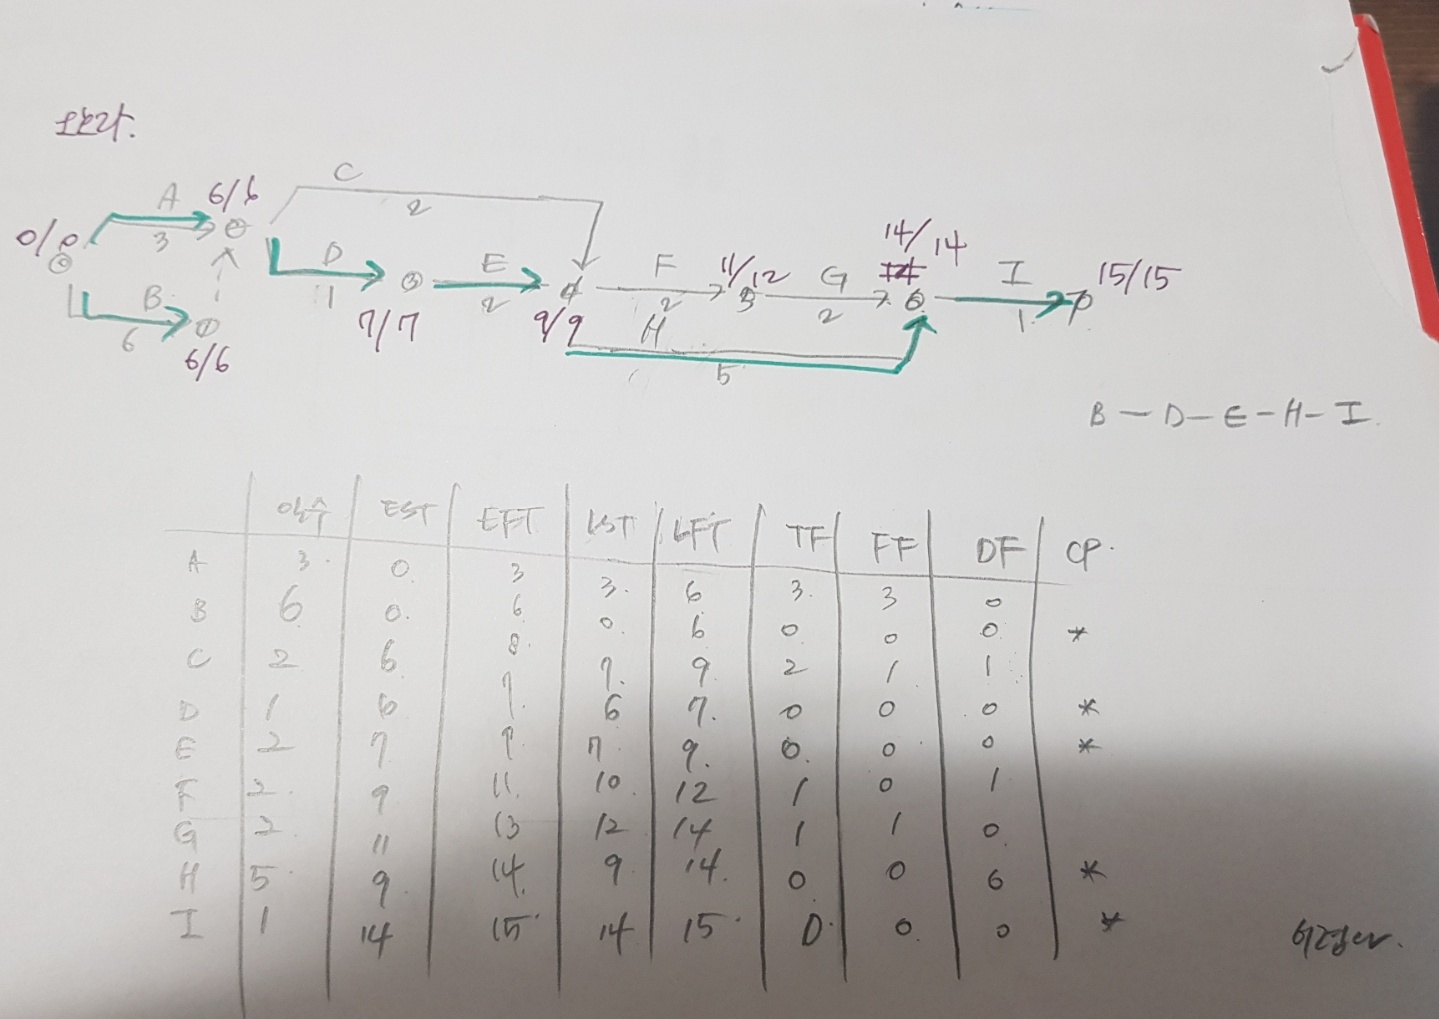 C
A 6/6
2
14/14
0/0 3
D E F 11/12 G I 15/15
B 1 2 2 2 1
6 7/7 9/9 H
6/6 5
B - D - E - H - I.
일수 EST EFT LST LFT TF FF DF CP.
A 3 0 3 3 6 3 3 0
B 6 0 6 0 6 0 0 0 *
C 2 6 8 7 9 2 1 1
D 1 6 7 6 7 0 0 0 *
E 2 7 9 7 9 0 0 0 *
F 2 9 11 10 12 1 0 1
G 2 11 13 12 14 1 1 0
H 5 9 14 9 14 0 0 0 *
I 1 14 15 14 15 0 0 0 *